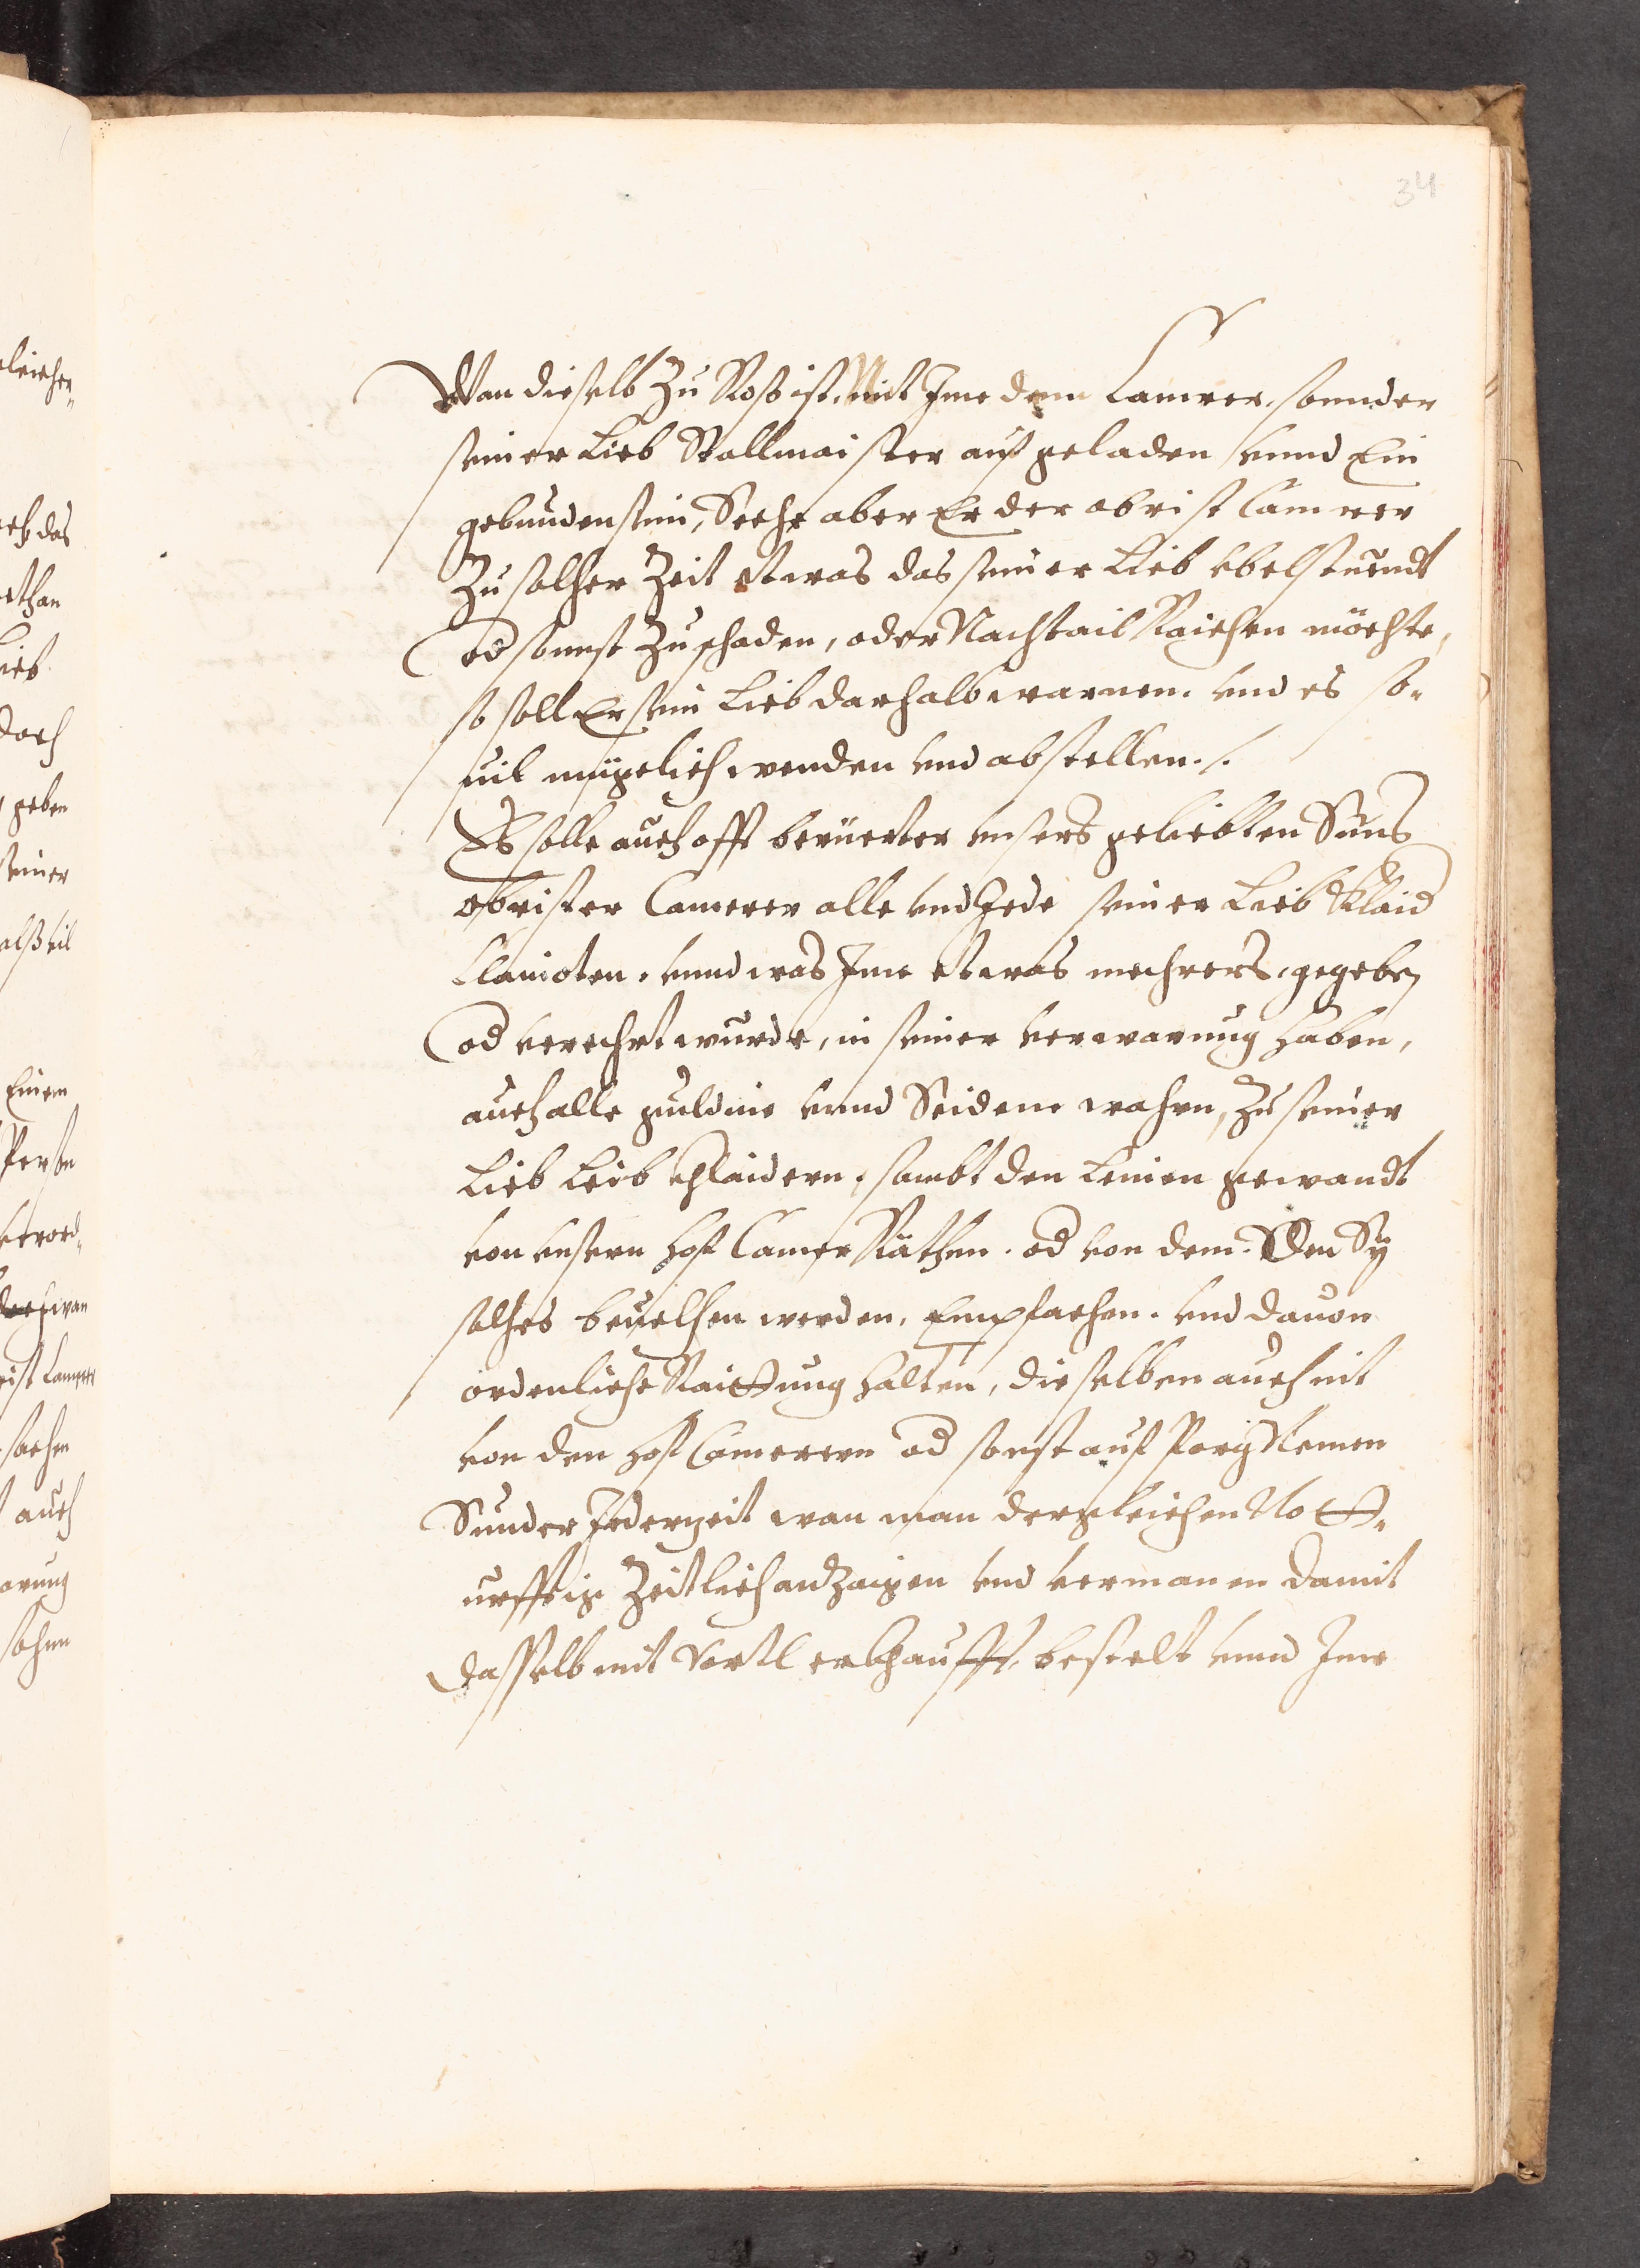 34
Wan dieselb Zu Roß ist, Mit Ime dem Camrer, sonnder
seiner Lieb Stallmaister aufgeladen vnnd Ein
gebunden sein, Sechs aber Er der obrist Camrer
Zu solher Zeit etwas das seiner Lieb vbelstuendt
od sonnst Zu schaden, oder Nachtail Raichen möchte,
so soll Er sein Lieb darhalb warnen. vnd es so-
uil müglich wenden vnd abstellen ./.
Es solle auch offt berüerter vnsers geliebten Suns
obrister Camerer alle vnd Jede seiner Lieb Klaid
Clainoten, vnnd was Ime etwas mehrers, gegeben
od verehrt wurde, in seiner verwarung haben,
auch alle guldine vnnd Seidene wahrn, Zu seiner
Lieb Leib Chlaidern, sambt den Leinen gewandt
von vnsern hof Camer Räthen. od von dem. Den Sÿ
solhes beuelhen werden, Empfachen. vnd dauon
ordenliche Raittung halten, dieselben auch nit
von den hof Camerern od sonst auf Porg Nemen
Sunder Jederzeit wan man dergleichen Nott-
urfftig Zeitlich anzaigen vnd vermanen damit
dasselb mit Vortl erkhaufft, bestelt vnnd Ime